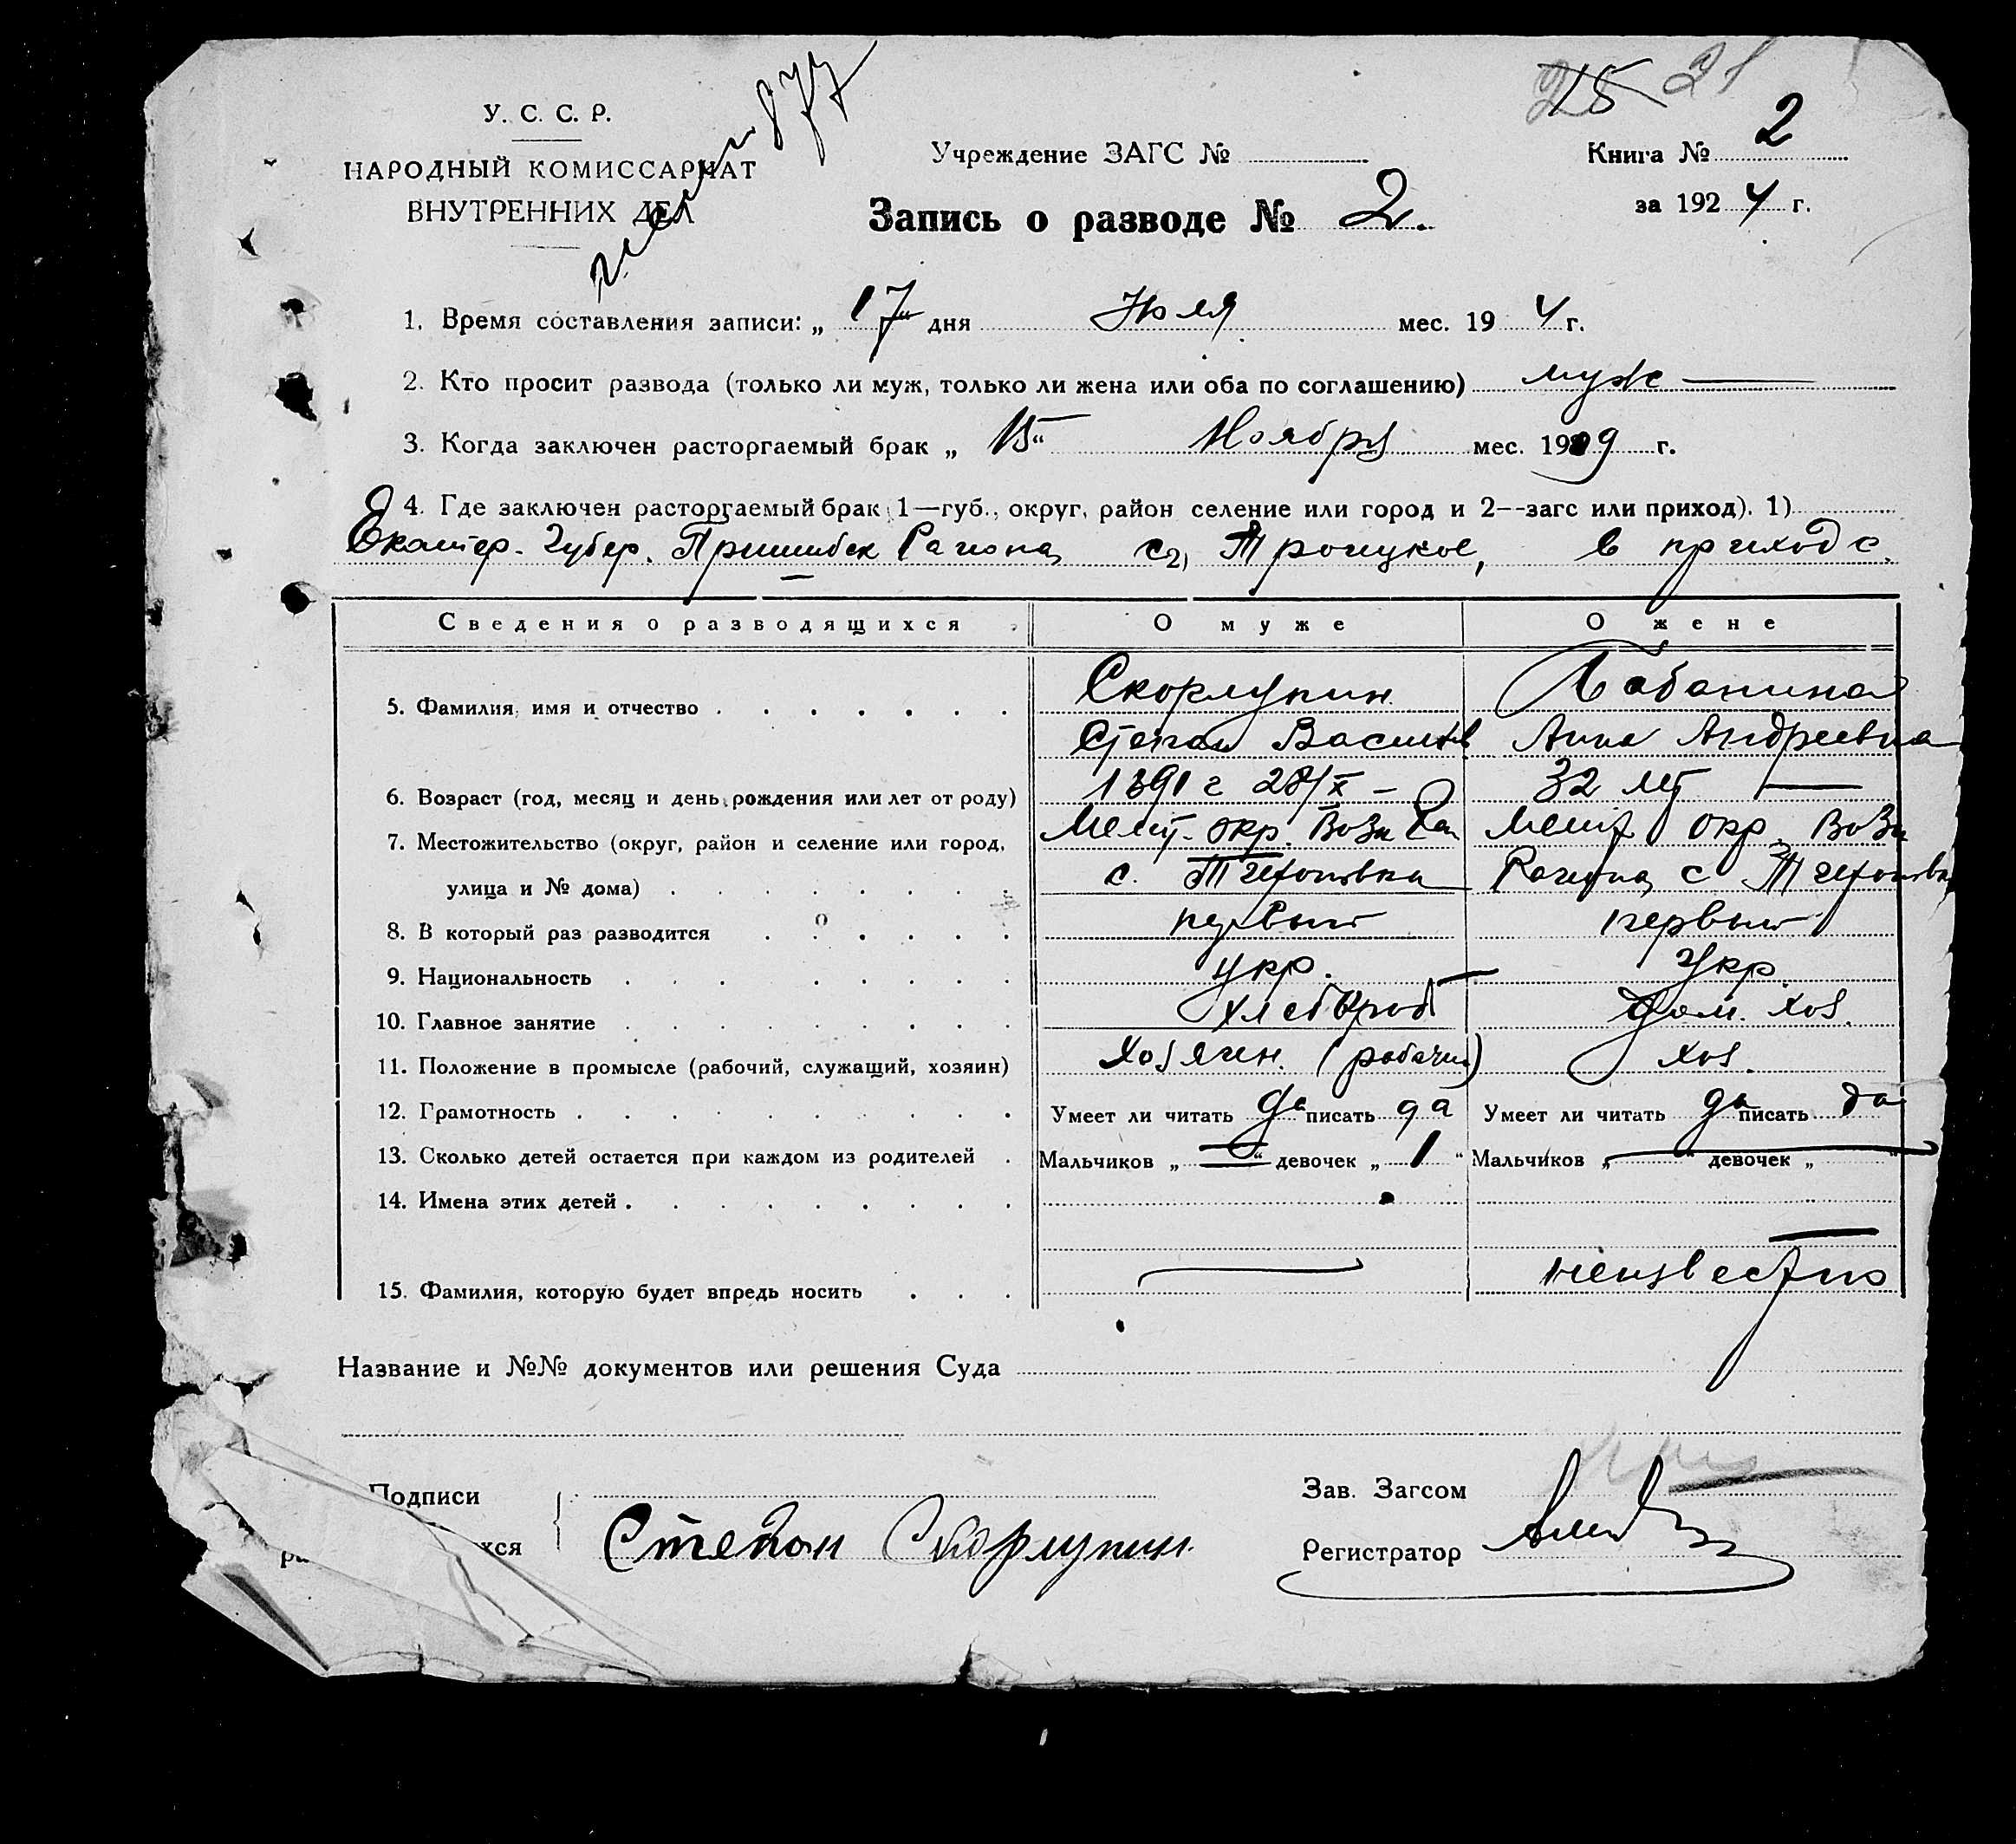 21
У. С. С. Р.
НАРОДНЫЙ КОМИССАРИАТ
ВНУТРЕННИХ ДЕЛ
877
Учреждение ЗАГС №
Книга № 2
за 1924 г.
Запись о разводе № 2.
1. Время составления записи: „ 17 “ дня Июля мес. 19 4 г.
2. Кто просит развода (только ли муж, только ли жена или оба по соглашению) муж —
3. Когда заключен расторгаемый брак „ 15 “ Ноября мес. 1909 г.
4. Где заключен расторгаемый брак 1—губ., округ, район селение или город и 2--загс или приход). 1)
Екатер. Губер. Пришибск Района с 2) Троицкое, в приходе.
Сведения о разводящихся О муже О жене
5. Фамилия, имя и отчество Скорлупин Лабанина
Степан Васильев Анна Андреевна
6. Возраст (год, месяц и день рождения или лет от роду) 1891 г 28/X — 32 лет —
7. Местожительство (округ, район и селение или город, Мелит. окр. Возн Мелит окр. Возн
улица и № дома) с. Тихоновка Района с Тихоновка
8. В который раз разводится первый первый
9. Национальность укр. Укр
10. Главное занятие хлебороб дом. хоз.
11. Положение в промысле (рабочий, служащий, хозяин) хозяин. (рабочий) хоз.
12. Грамотность Умеет ли читать да писать да Умеет ли читать да писать да
13. Сколько детей остается при каждом из родителей Мальчиков „ — “ девочек „ 1 “ Мальчиков „ — “ девочек „ “
14. Имена этих детей
15. Фамилия, которую будет впредь носить — неизвестно
Название и №№ документов или решения Суда
Подписи
хся
Степан Скорлупин
Зав. Загсом
Регистратор